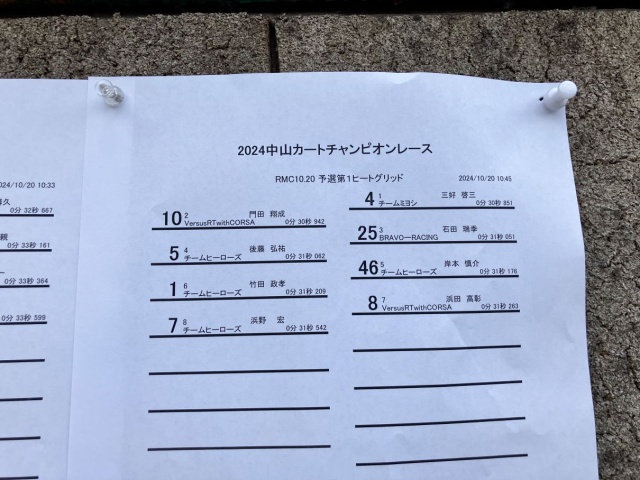 2024中山カートチャンピオンレース
RMC10.20 予選第1ヒートグリッド 2024/10/20 10:45
4 1 三好 啓三
チームミヨシ 0分 30秒 851
10 2 門田 翔成
VersusRTwithCORSA 0分 30秒 942
25 3 石田 瑞季
BRAVOーRACING 0分 31秒 051
5 4 後藤 弘祐
チームヒーローズ 0分 31秒 062
46 5 岸本 慎介
チームヒーローズ 0分 31秒 176
1 6 竹田 政孝
チームヒーローズ 0分 31秒 209
8 7 浜田 高彰
VersusRTwithCORSA 0分 31秒 263
7 8 浜野 宏
チームヒーローズ 0分 31秒 542
024/10/20 10:33
久
0分 32秒 667
親
0分 33秒 161
0分 33秒 364
0分 33秒 599